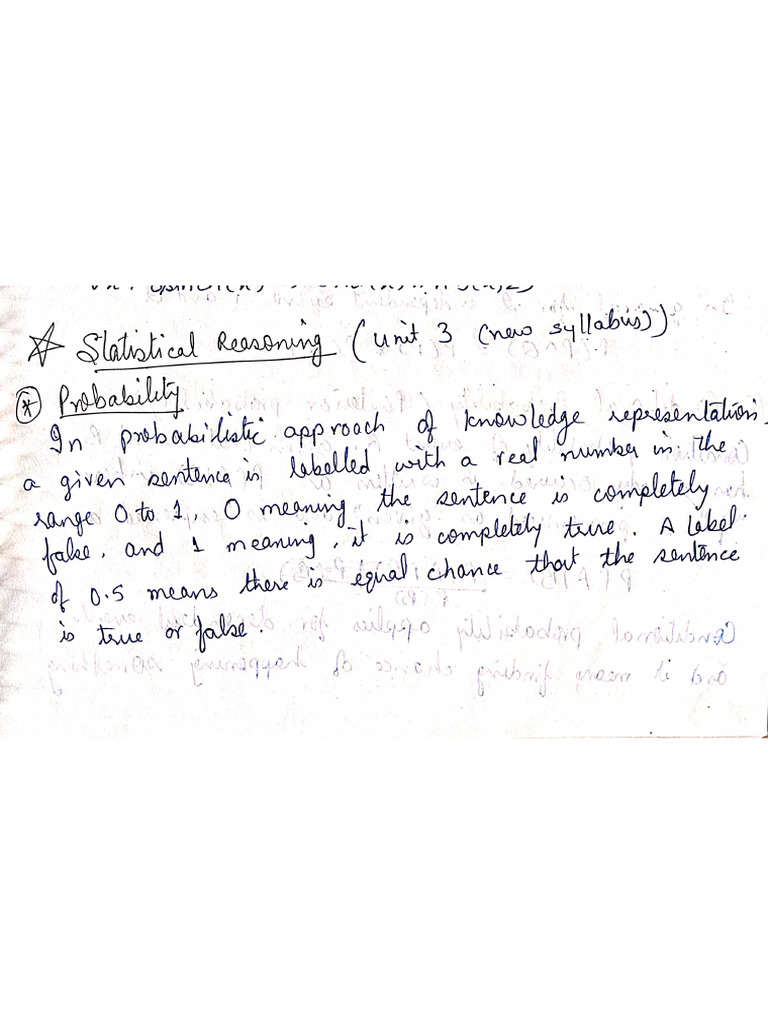 ☆ Statistical Reasoning (Unit 3 (new syllabus))
* Probability
In probabilistic approach of knowledge representation,
a given sentence is labelled with a real number in the
range 0 to 1, 0 meaning the sentence is completely
false, and 1 meaning, it is completely true. A label
of 0.5 means there is equal chance that the sentence
is true or false.